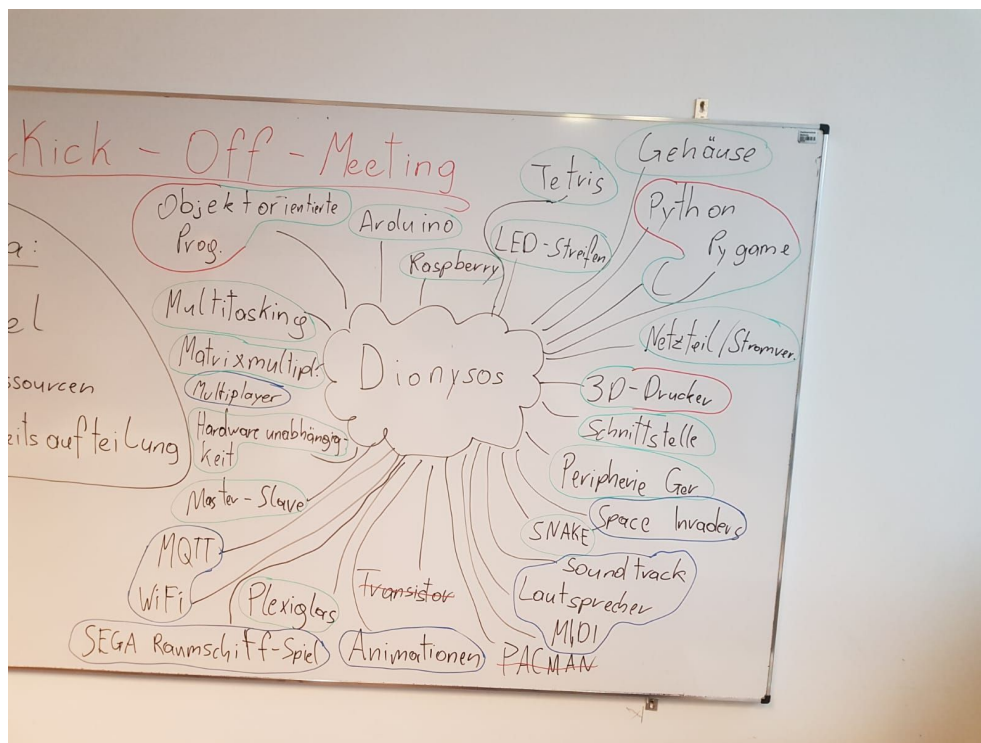 Kick - Off - Meeting
a:
el
ssourcen
eitsaufteilung
Objektorientierte
Prog.
Arduino
Raspberry
Tetris
LED-Streifen
Gehäuse
Python
Pygame
C
Netzteil/Stromver.
3D-Drucker
Schnittstelle
Peripherie Ger
Space Invaders
SNAKE
Soundtrack
Lautsprecher
MIDI
PACMAN
Transistor
Animationen
Plexiglas
SEGA Raumschiff-Spiel
MQTT
WiFi
Master-Slave
Hardware unabhängig-
keit
Multiplayer
Matrixmultipl.
Multitasking
Dionysos